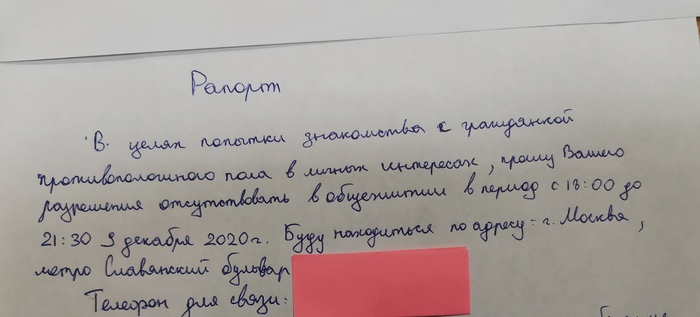 Рапорт
В целях попытки знакомства с гражданкой
противоположного пола в личных интересах, прошу Вашего
разрешения отсутствовать в общежитии в период с 18:00 до
21:30 9 декабря 2020г. Буду находиться по адресу: г. Москва,
метро Славянский бульвар
Телефон для связи: